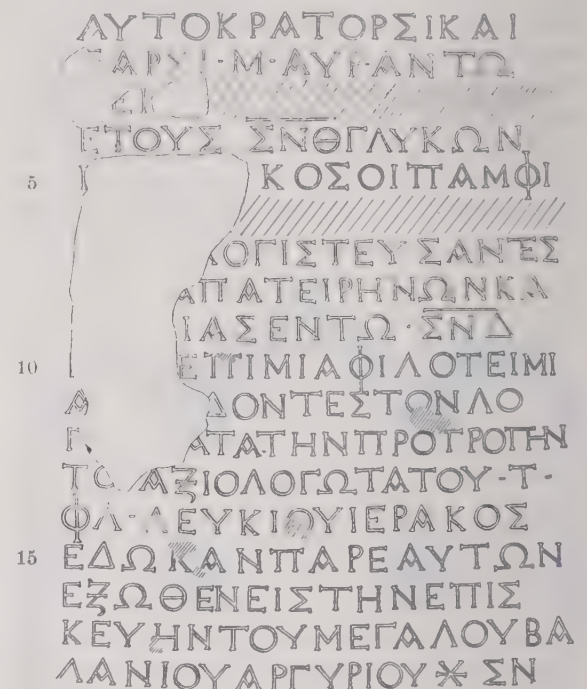 ΑΥΤΟΚΡΑΤΟΡΣΙΚΑΙ
ΣΑΡΣΙ·Μ·ΑΥΡ·ΑΝΤΩ
ΕΤΟΥΣ ΣΝΘΓΛΥΚΩΝ
5 ΚΟΣΟΙΠΑΜΦΙ
ΛΟΓΙΣΤΕΥΣΑΝΤΕΣ
ΑΠΑΤΕΙΡΗΝΩΝΚΑ
ΙΑΣΕΝΤΩ·ΣΝΔ
10 ΕΠΙΜΙΑΦΙΛΟΤΕΙΜΙ
Α ΔΟΝΤΕΣΤΟΝΛΟ
Γ ΑΤΑΤΗΝΠΡΟΤΡΟΠΗΝ
ΤΟ ΑΞΙΟΛΟΓΩΤΑΤΟΥ·Τ·
ΦΛ·ΛΕΥΚΙΟΥΙΕΡΑΚΟΣ
15 ΕΔΩΚΑΝΠΑΡΕΑΥΤΩΝ
ΕΞΩΘΕΝΕΙΣΤΗΝΕΠΙΣ
ΚΕΥΗΝΤΟΥΜΕΓΑΛΟΥΒΑ
ΛΑΝΙΟΥΑΡΓΥΡΙΟΥ Ӿ ΣΝ